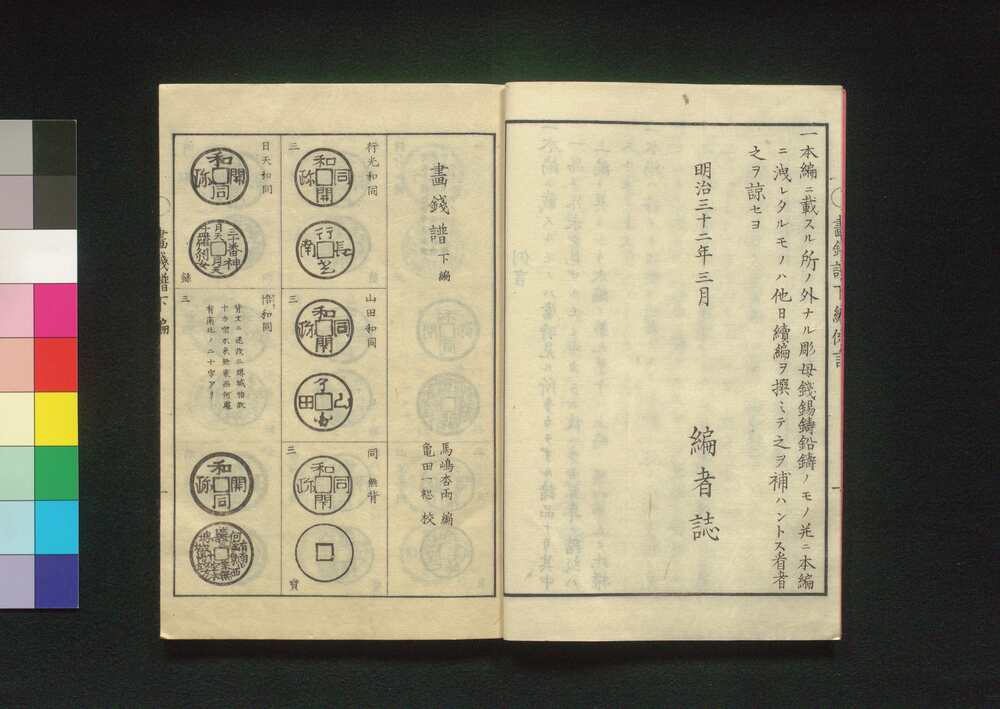 一本編ニ載スル所ノ外ナル彫母錢錫鑄鉛鑄ノモノ並ニ本編
ニ洩レタルモノハ他日續編ヲ撰ミテ之ヲ補ハントス看者
之ヲ諒セヨ
明治三十二年三月
編者誌
畫錢譜下編
馬嶋杏雨編
龜田一恕校
行光和同
三
和同開珎
行光
長南
山田和同
三
和同開珎
山田
同無背
三
和同開珎
寶
日天和同
和開同珎
三十番神
錄
悟和同
三
背文ニ迷故三界城悟故
十方空本來無東西何處
有南北ノ二十字アリ
和開同珎
畫錢譜下編